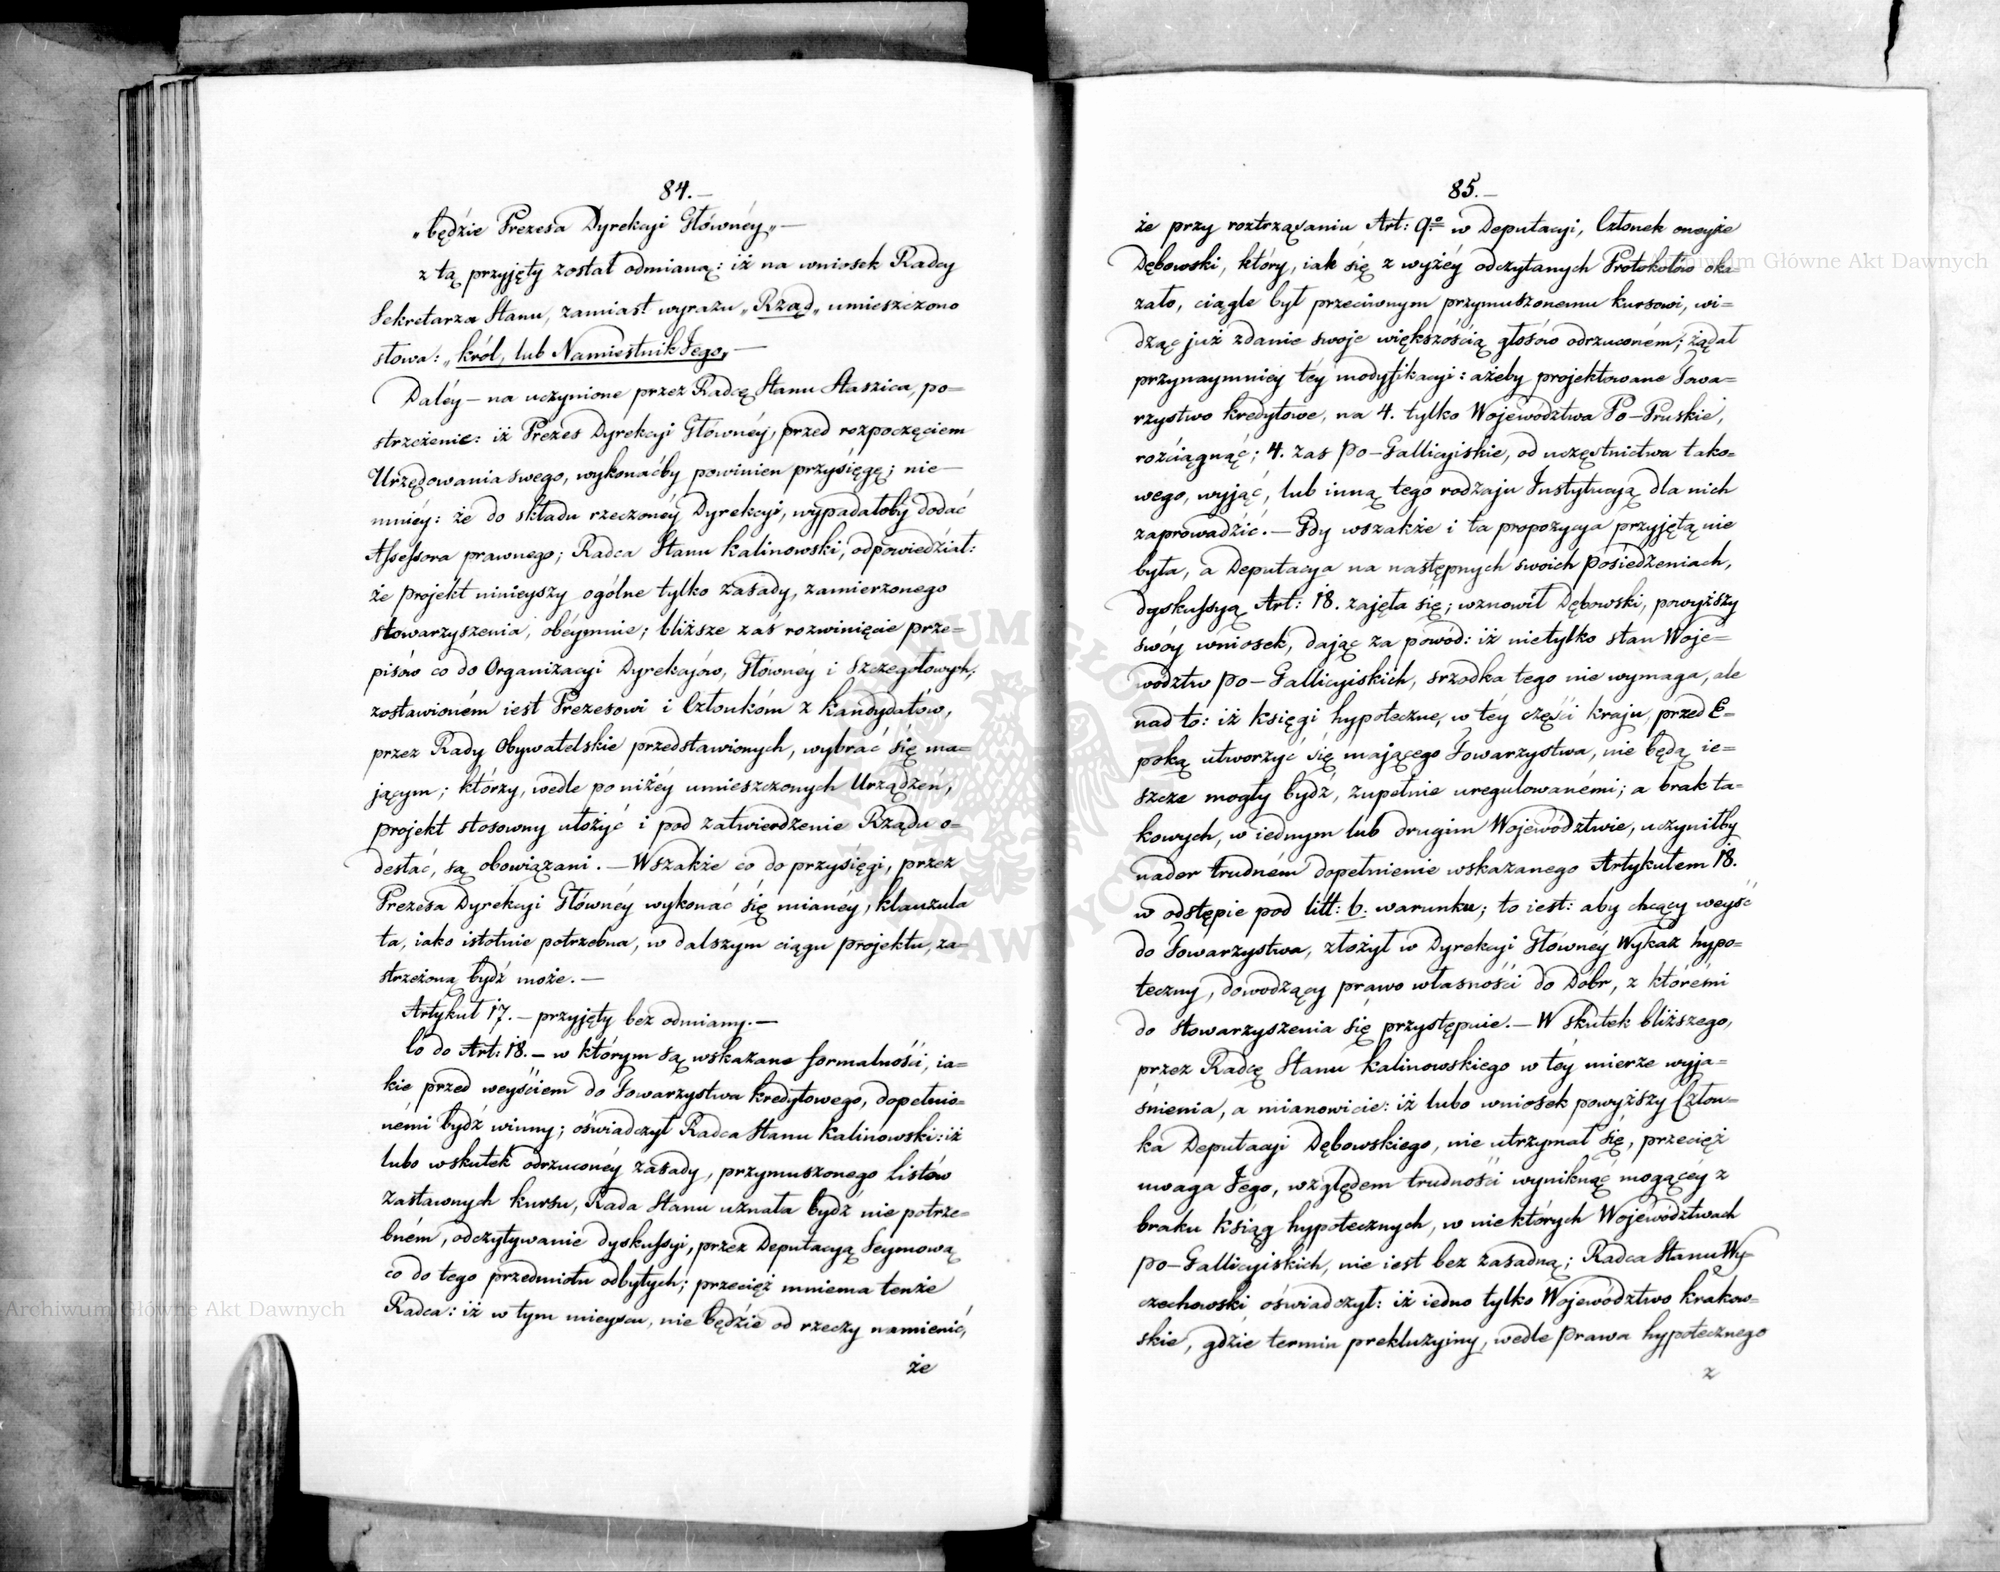 84.—
„będzie Prezesa Dyrekcyi Głównéy„—
z tą przyjęty został odmianą: iż na wniosek Radcy
Sekretarza Stanu, zamiast wyrazu „Rząd„ umieszczono
słowa: „król, lub Namiestnik Jego„—
Daléy — na uczynione przez Radcę Stanu Staszica, po=
strzeżenie: iż Prezes Dyrekcyi Głównéy, przed rozpoczęciem
Urzędowania swego, wykonaćby powinien przysięgę; nie—
mniéy: że do składu rzeczonéy Dyrekcyi, wypadałoby dodać
Assessora prawnego; Radca Stanu Kalinowski, odpowiedział:
że projekt ninieyszy ogólne tylko zasady, zamierzonego
stowarzyszenia, obéymnie; bliższe zaś rozwinięcie prze=
pisów co do Organizacyi Dyrekcyów, Głównéy i Szczegółowych,
zostawioném iest Prezesowi i Członkóm z Kandydatów,
przez Rady Obywatelskie przedstawionych, wybrać się ma=
jącym; którzy, wedle poniżéy umieszczonych Urządzeń,
projekt stosowny ułożyć i pod zatwierdzenie Rządu o=
desłać, są obowiązani. — Wszakże co do przysięgi, przez
Prezesa Dyrekcyi Głównéy wykonać się mianéy, klauzula
ta, iako istotnie potrzebna, w dalszym ciągu projektu, za=
strzeżoną bydź może. —
Artykuł 17. — przyjęty bez odmiany. —
Co do Art: 18. — w którym są wskazane formalności, ia=
kie przed weyściem do Towarzystwa kredytowego, dopełnio=
némi bydź winny; oświadczył Radca Stanu Kalinowski: iż
lubo wskutek odrzuconéy zasady, przymuszonego listów
zastawnych kursu, Rada Stanu uznała bydź nie potrze=
bném, odczytywanie dyskussyi, przez Deputacyą Seymową
co do tego przedmiotu odbytych; przecięż mniema tenże
Radca: iż w tym mieyscu, nie będzie od rzeczy namienić,
że
85.—
że przy roztrząsaniu Art: 9º w Deputacyi, Członek oneyże
Dębowski, który, iak się z wyżéy odczytanych Protokołów oka=
zało, ciągle był przeciwnym przymuszonemu kursowi, wi=
dząc już zdanie swoje większością głosów odrzuconém; żądał
przynaymniey téy modyfikacyi: ażeby projektowane Towa=
rzystwo kredytowe, na 4. tylko Województwa Po-Pruskie,
rozciągnąć; 4. zas Po-Gallicyiskie, od uczęstnictwa tako=
wego, wyjąć, lub inną tego rodzaju Instytucyą dla nich
zaprowadzić. — Gdy wszakże i ta propozycya przyjętą nie
była, a Deputacya na następnych swoich posiedzeniach,
dyskussyą Art: 18. zajęła się; wznowił Dębowski, powyższy
swóy wniosek, dając za powód: iż nietylko stan Woje=
wództw po-Gallicyiskich, srzodka tego nie wymaga, ale
nad to: iż księgi hypoteczne, w téy części kraju, przed E=
poką utworzyć się mającego Towarzystwa, nie będą ie=
szcze mogły bydź, zupełnie uregulowanémi; a brak ta=
kowych, w iednym lub drugim Województwie, uczyniłby
nader trudném dopełnienie wskazanego Artykułem 18.
w odstępie pod litt: b. warunku; to iest: aby chcący weyść
do Towarzystwa, złożył w Dyrekcyi Głównéy Wykaz hypo=
teczny, dowodzący prawo własności do Dóbr, z którémi
do stowarzyszenia się przystępuie. — W skutek bliższego,
przez Radcę Stanu Kalinowskiego w téy mierze wyja=
śnienia, a mianowicie: iż lubo wniosek powyższy Człon=
ka Deputacyi Dębowskiego, nie utrzymał się, przecięż
uwaga Jego, względem trudności wyniknąć mogącéy z
braku ksiąg hypotecznych, w niektórych Województwach
po-Gallicyiskich, nie iest bez zasadną; Radca Stanu Wy=
czechowski oświadczył: iż iedno tylko Województwo Krakow=
skie, gdzie termin prekluzyiny, wedle Prawa hypotecznego
z
Archiwum Główne Akt Dawnych
Archiwum Główne Akt Dawnych
ARCHIWUM GŁÓWNE AKT DAWNYCH